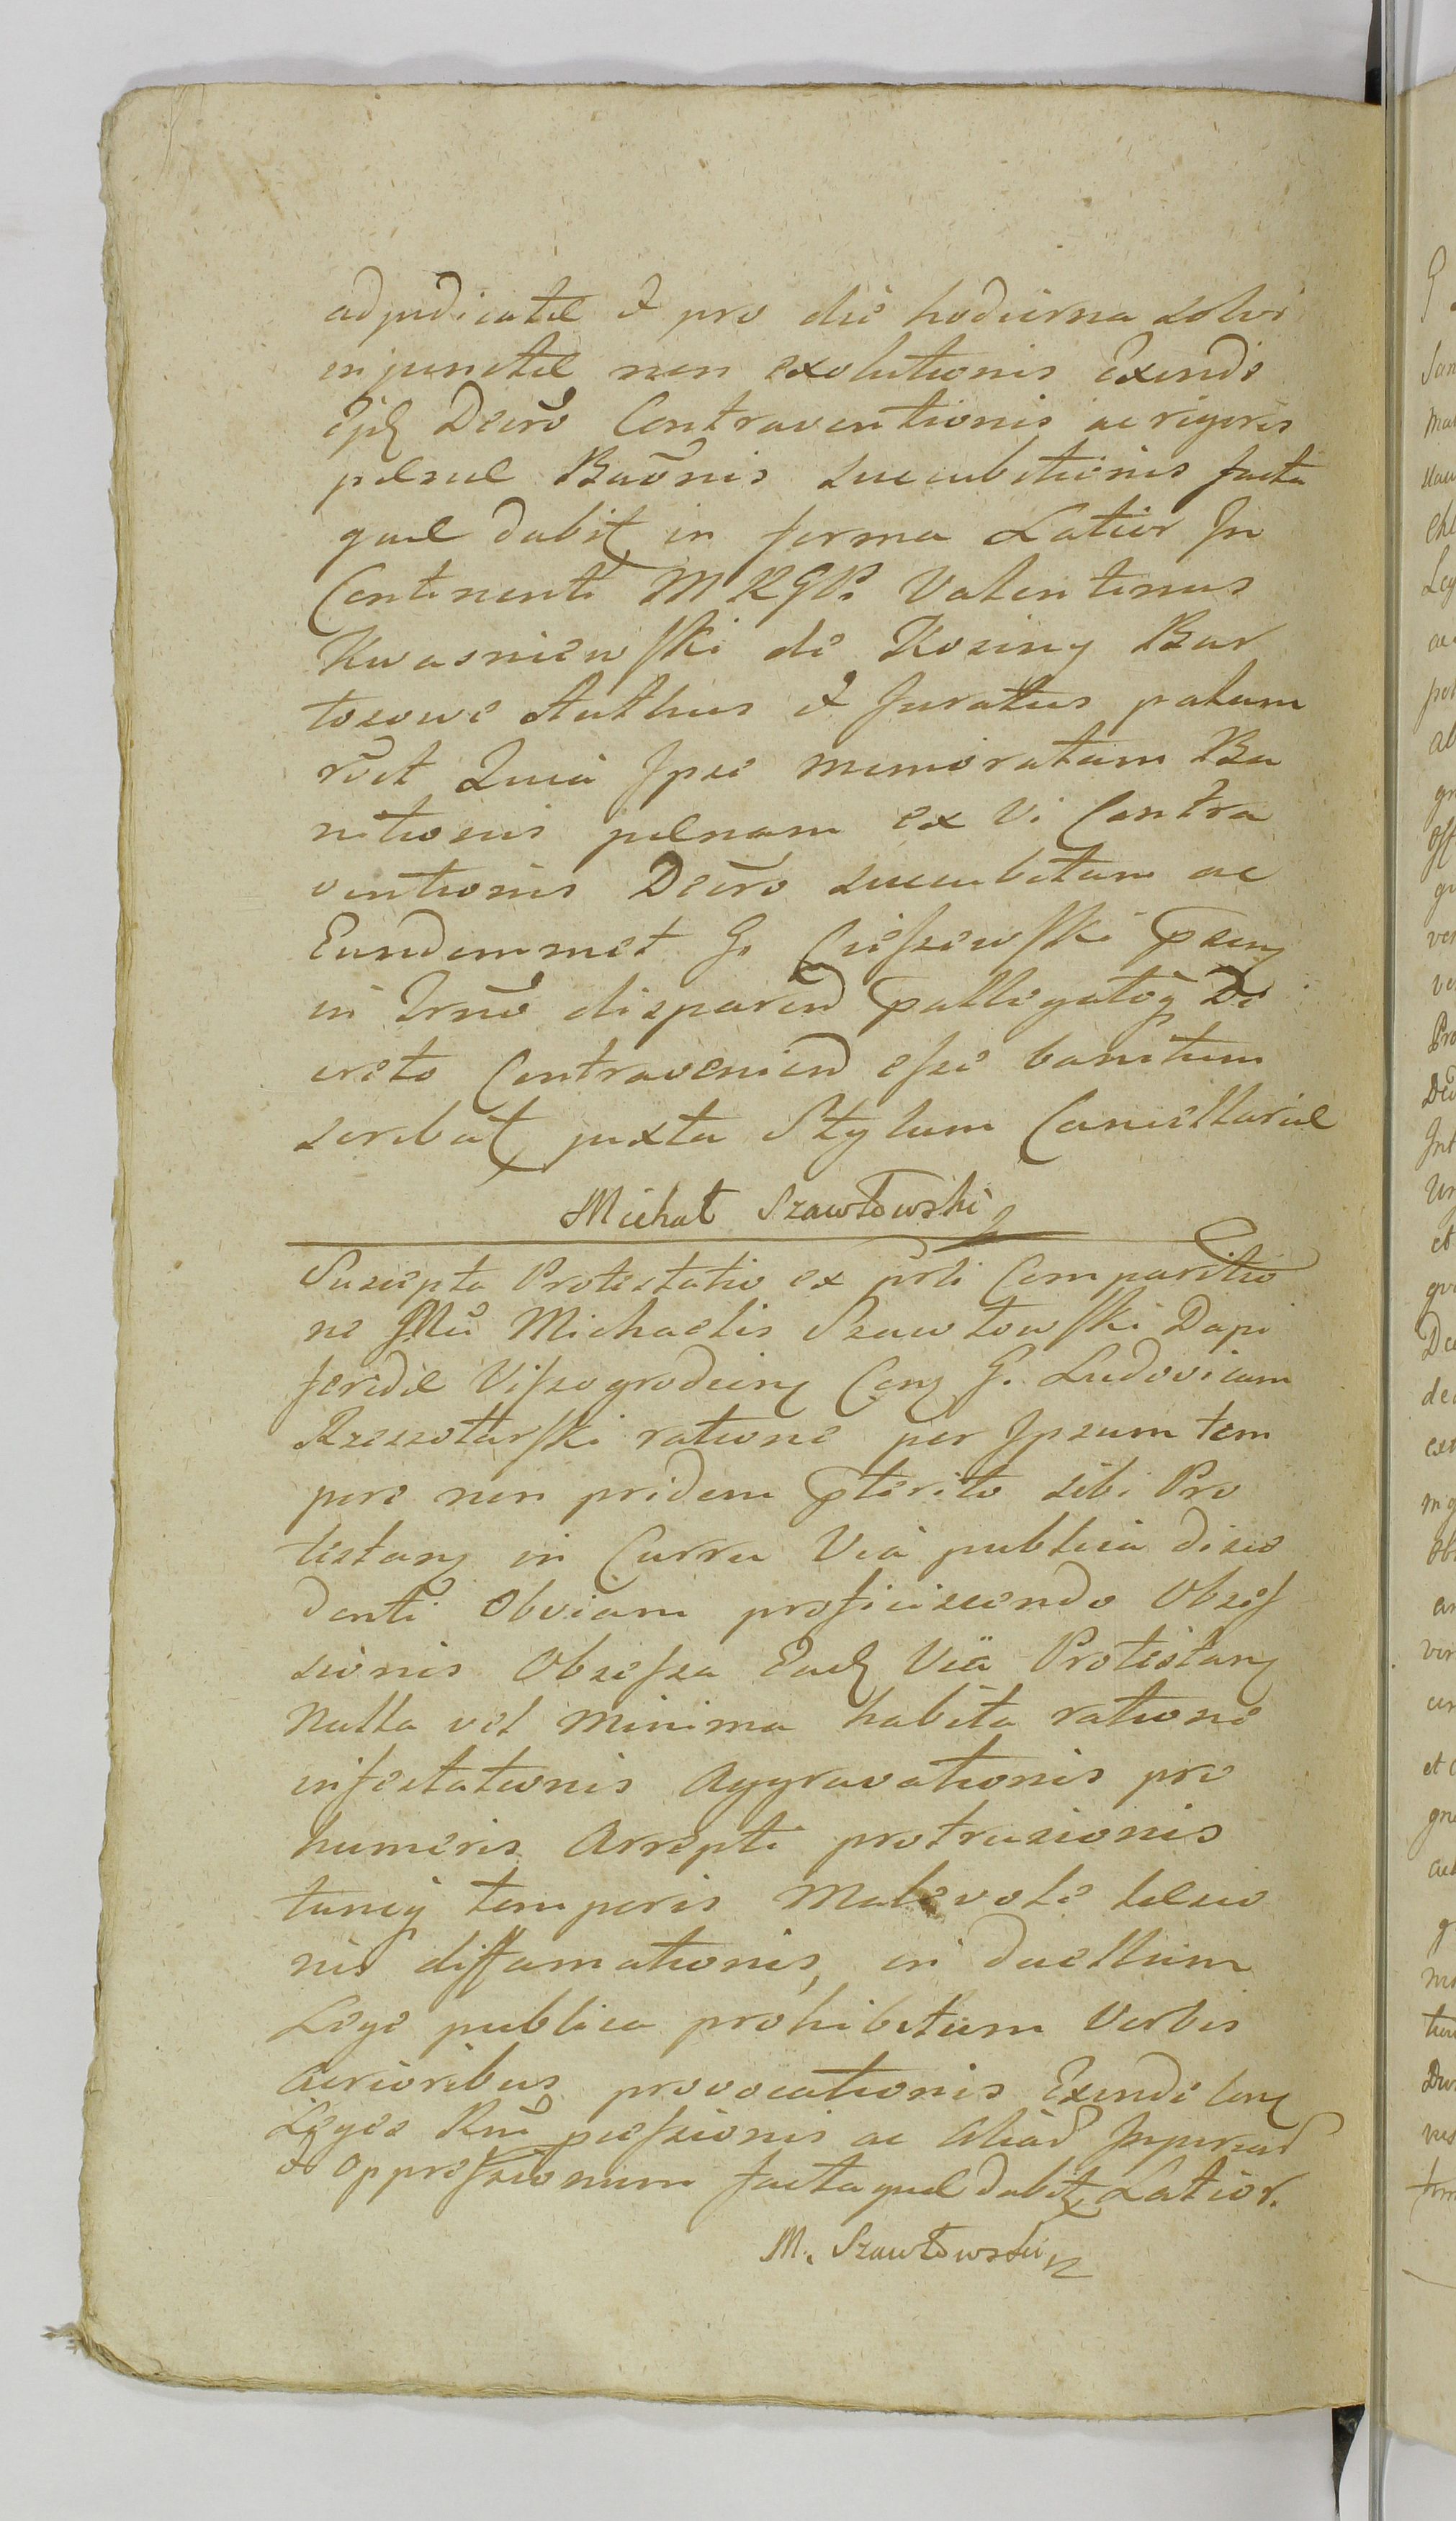 adjudicatæ & pro die hodierna solvi
injunctæ non exolutionis Exinde
Ejq Decro Contraventionis ac rigoris
pænæ Baōnis succubitionis facta
quæ dabit in forma Latior In
Continenti MRGP. Valentinus
Kwasniewski de Kosiny Bar
tosowe Authus & Juratus palam
rēct Quia Ipse memoratam Ba
nitionis pænam ex Vi Contra
ventionis Decro succubitam ac
Eundemmet G. Cieszewski
in Trnō disparen
creto Contravenien esse banitum
scribat juxta Stylum Cancellariæ
Michał Szawłowski
Suscepta Protestatio ex prli Comparitio
ne Mci Michaelis Szawłowski Dapi
feridæ Viszogrodien Con G. Ludovicum
Rzeszotarski ratione per Ipsum tem
pore non pridem pterito sibi Pro
testan in Curru Via publica disce
denti Obviam proficiscendo Obses
sionis Obsessa Eadq Via Protestan
Nulla vel minima habita ratione
infestationis Aggravationis pro
humeris Arrepti protrusionis
tuncq temporis Malevole læsio
nis diffamationis, in duellium
Lege publica prohibitum Verbis
acrioribus provocationis Exinde Con
Leges Rni pcessionis ac Aliad Injuriad
& Oppressionum facta quæ dabit Latior.
M. Szawłowski